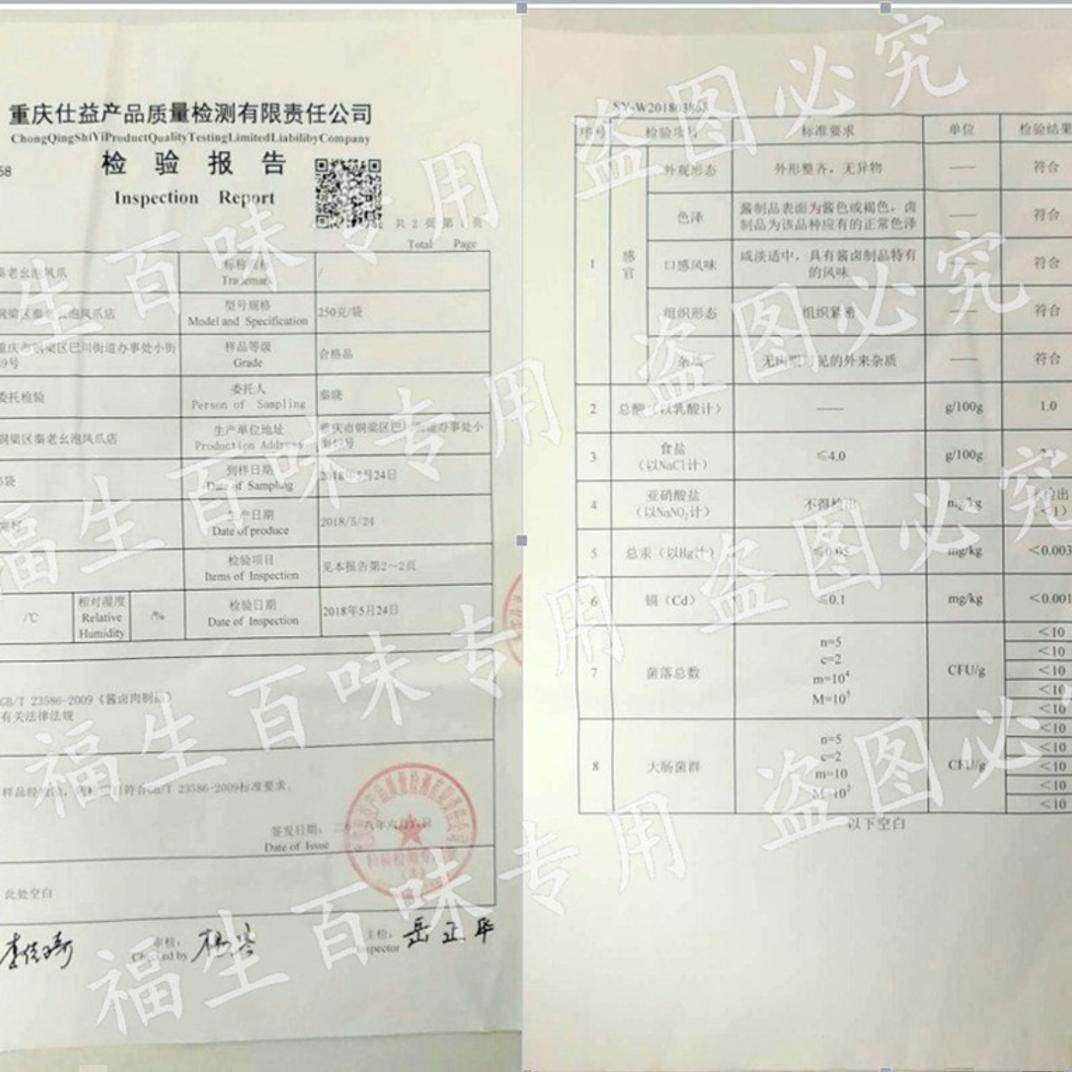 重庆仕益产品质量检测有限责任公司
ChongQingShiYiProductQualityTestingLimitedLiabilibyCompany
检验报告
58
Inspection Report
共 2 页 第 1 页
Total Page
秦老幺泡凤爪
标称商标
Trademark
/
铜梁区秦老幺泡凤爪店
型号规格
Model and Specification
250克/袋
重庆市铜梁区巴川街道办事处小街
49号
样品等级
Grade
合格品
委托检验
委托人
Person of Sampling
秦晓
铜梁区秦老幺泡凤爪店
生产单位地址
Production Address
重庆市铜梁区巴川街道办事处小
街49号
袋
到样日期
Date of Sampling
2018年5月24日
生产日期
Date of produce
2018/5/24
检验项目
Items of Inspection
见本报告第2～2页
/℃
相对湿度
Relative
Humidity
/%
检验日期
Date of Inspection
2018年5月24日
GB/T 23586-2009《酱卤肉制品》
有关法律法规
样品经检验，所检项目符合GB/T 23586-2009标准要求。
签发日期：
二〇一八年六月六日
Date of Issue
此处空白
审核：
Checked by
主检：
Inspector
岳正华
SY-W201803858
序号 检验项目 标准要求 单位 检验结果
1
感官
外观形态 外形整齐，无异物 —— 符合
色泽
酱制品表面为酱色或褐色，卤
制品为该品种应有的正常色泽
—— 符合
口感风味
咸淡适中，具有酱卤制品特有
的风味
—— 符合
组织形态 组织紧密 —— 符合
杂质 无肉眼可见的外来杂质 —— 符合
2 总酸（以乳酸计） —— g/100g 1.0
3
食盐
（以NaCl计）
≤4.0 g/100g
4
亚硝酸盐
（以NaNO₂计）
不得检出 mg/kg
未检出
（<1）
5 总汞（以Hg计） ≤0.05 mg/kg <0.003
6 镉（Cd） ≤0.1 mg/kg <0.001
7 菌落总数
n=5
c=2
m=10⁴
M=10⁵
CFU/g
<10
<10
<10
<10
<10
8 大肠菌群
n=5
c=2
m=10
M=10²
CFU/g
<10
<10
<10
<10
<10
以下空白
福生百味专用 盗图必究
福生百味专用 盗图必究
福生百味专用 盗图必究
福生百味专用 盗图必究